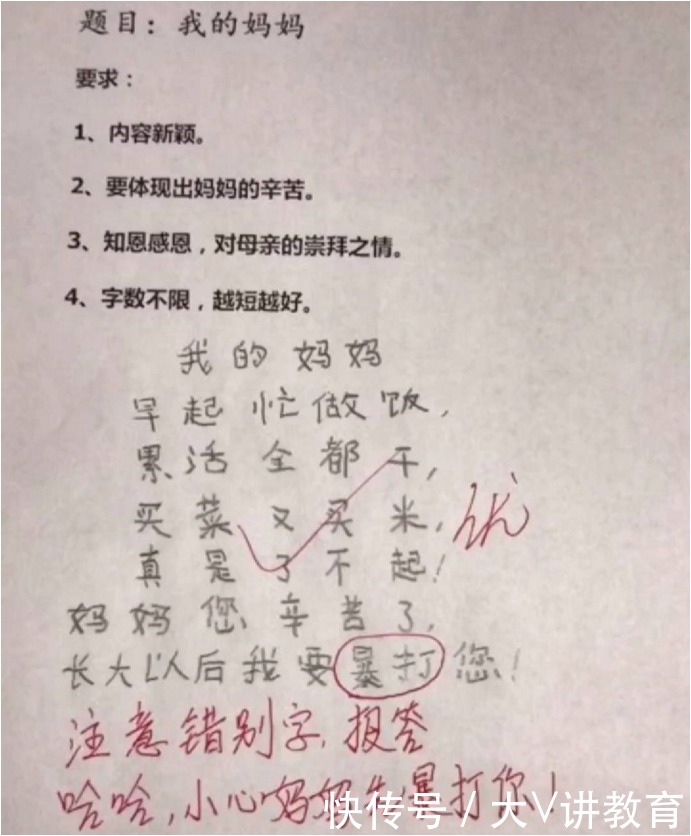 题目：我的妈妈
要求：
1、内容新颖。
2、要体现出妈妈的辛苦。
3、知恩感恩，对母亲的崇拜之情。
4、字数不限，越短越好。
我的妈妈
早起忙做饭，
累活全都干，
买菜又买米，
优
真是了不起！
妈妈您辛苦了，
长大以后我要暴打您！
注意错别字，报答
哈哈，小心妈妈先暴打你！
快传号 / 大V讲教育